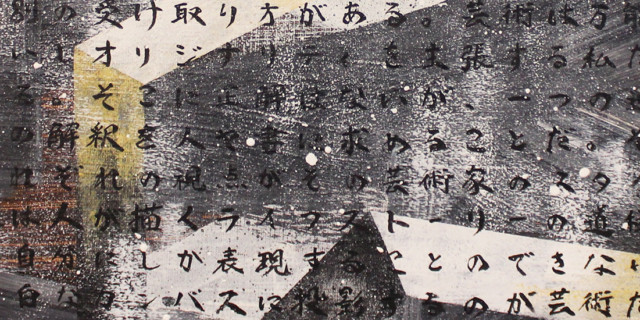 別の受け取り方がある。芸術は万
いしオリジナリティを主張する私た
る。そこに正解はないが、一つの
の解釈を人に求めることだ。
れぞれの視点がその芸術家のスタ
は人が描くライフストーリーの道
自分にしか表現することのできない
白なカンバスに投影するのが芸術だ